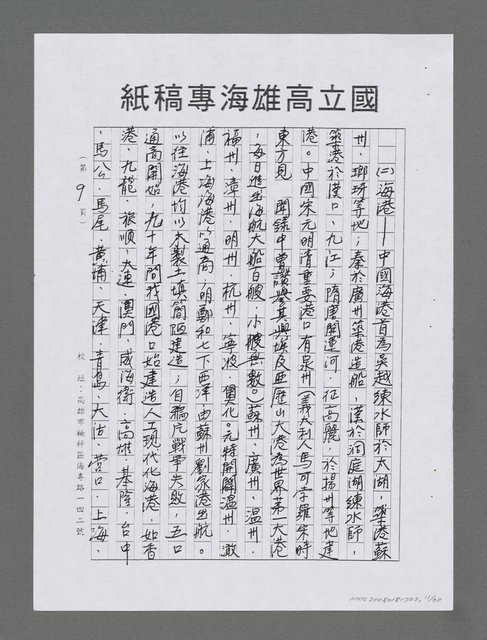 國立高雄海專稿紙
(二)海港——中國海港首為吳越練水師於太湖，築港蘇
州、瑯玡等地；秦於廣州築港造船，漢於洞庭湖練水師，
築港於漢口、九江；隋唐開運河，征高麗，於揚州等地建
港。中國宋元明清重要港口有泉州(義大利人馬可孛羅來時
東方見聞錄中曾讚譽其與埃及亞歷山大港為世界第一大港
，每日進出海航大船百艘，小艘無數。)蘇州、廣州、溫州、
福州、漳州、明州、杭州、寧波、奉化。元特開闢溫州、澉
浦、上海海港以通商；明鄭和七下西洋由蘇州劉家港出航。
以往海港均以木製土填簡陋建造；自鴉片戰爭失敗，五口
通商開始，九十年間我國港口始建造人工現代化海港，如香
港、九龍、旅順、大連、澳門、威海衛、高雄、基隆、台中
、馬公、馬尾、黃埔、天津、青島、大沽、營口、上海、
(第9頁)
校址：高雄市楠梓區海專路一四二號
NMTL20080181702, 11/30